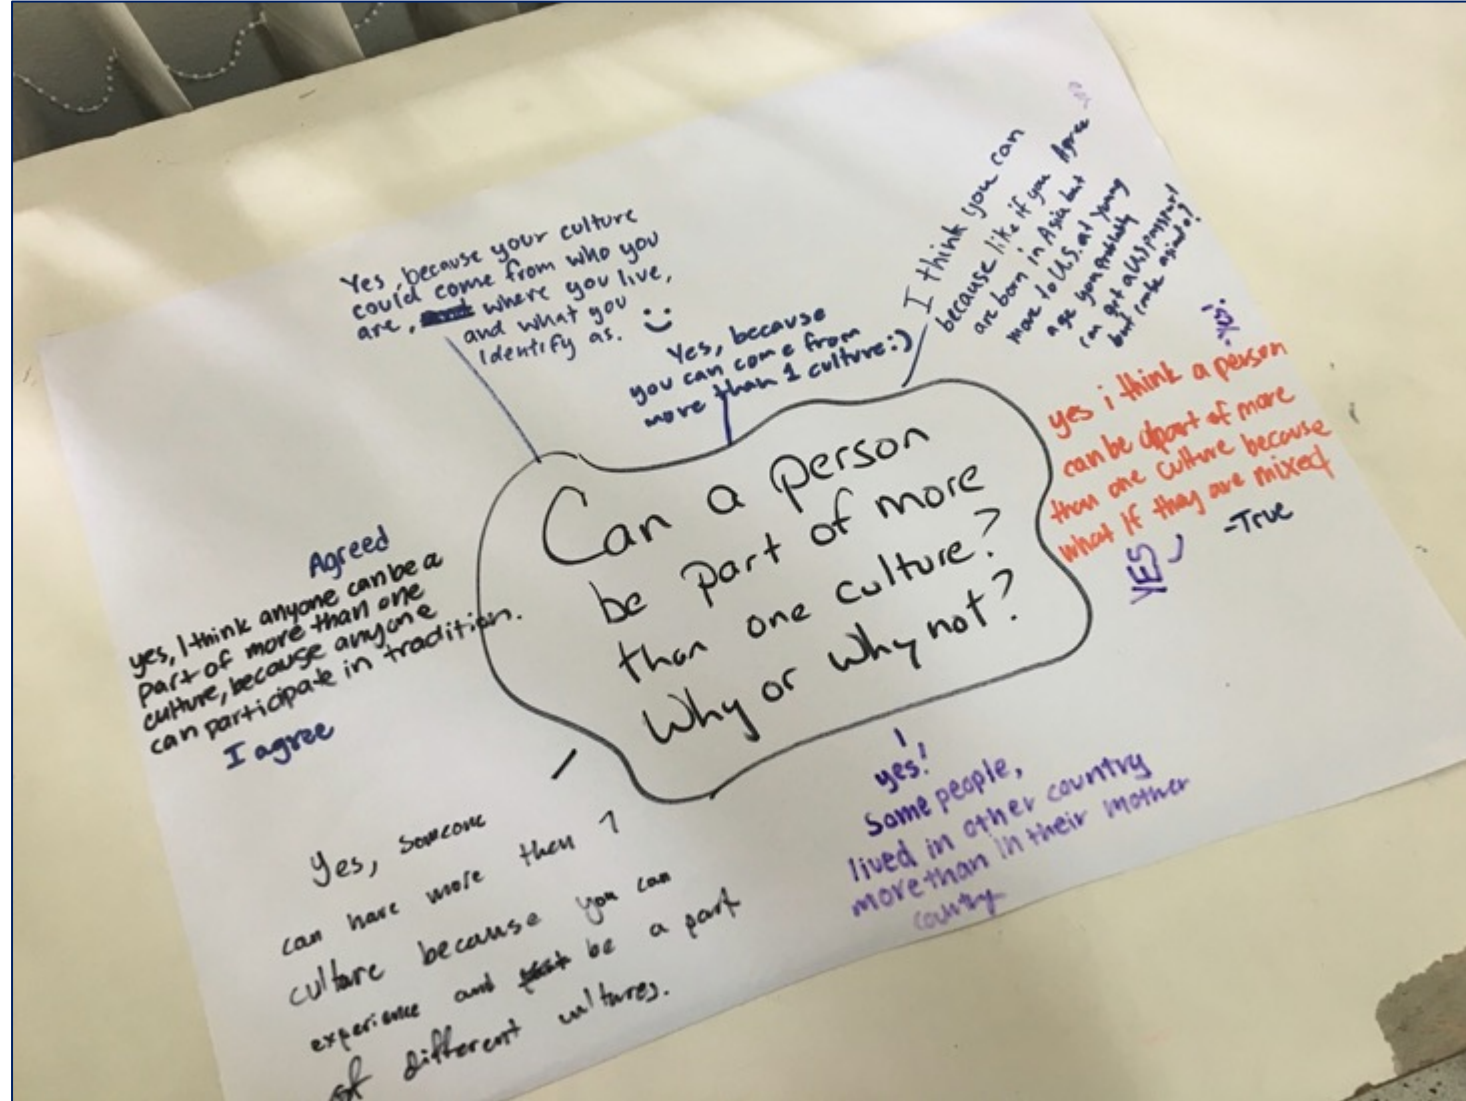 Can a person
be part of more
than one culture?
Why or why not?
Yes, because your culture
could come from who you
are, where you live,
and what you
identify as. :)
Yes, because
you can come from
more than 1 culture:)
I think you can
because like if you Agree
are born in Asia but
move to U.S. at young
age you probably
got a U.S passport
but
yes i think a person
can be apart of more
than one culture because
what if they are mixed
YES
-True
Agreed
yes, I think anyone can be a
part of more than one
culture, because anyone
can participate in tradition.
I agree
Yes, someone
can have more then 1
culture because you can
experience and be a part
of different cultures.
yes!
Some people,
lived in other country
more than in their mother
country